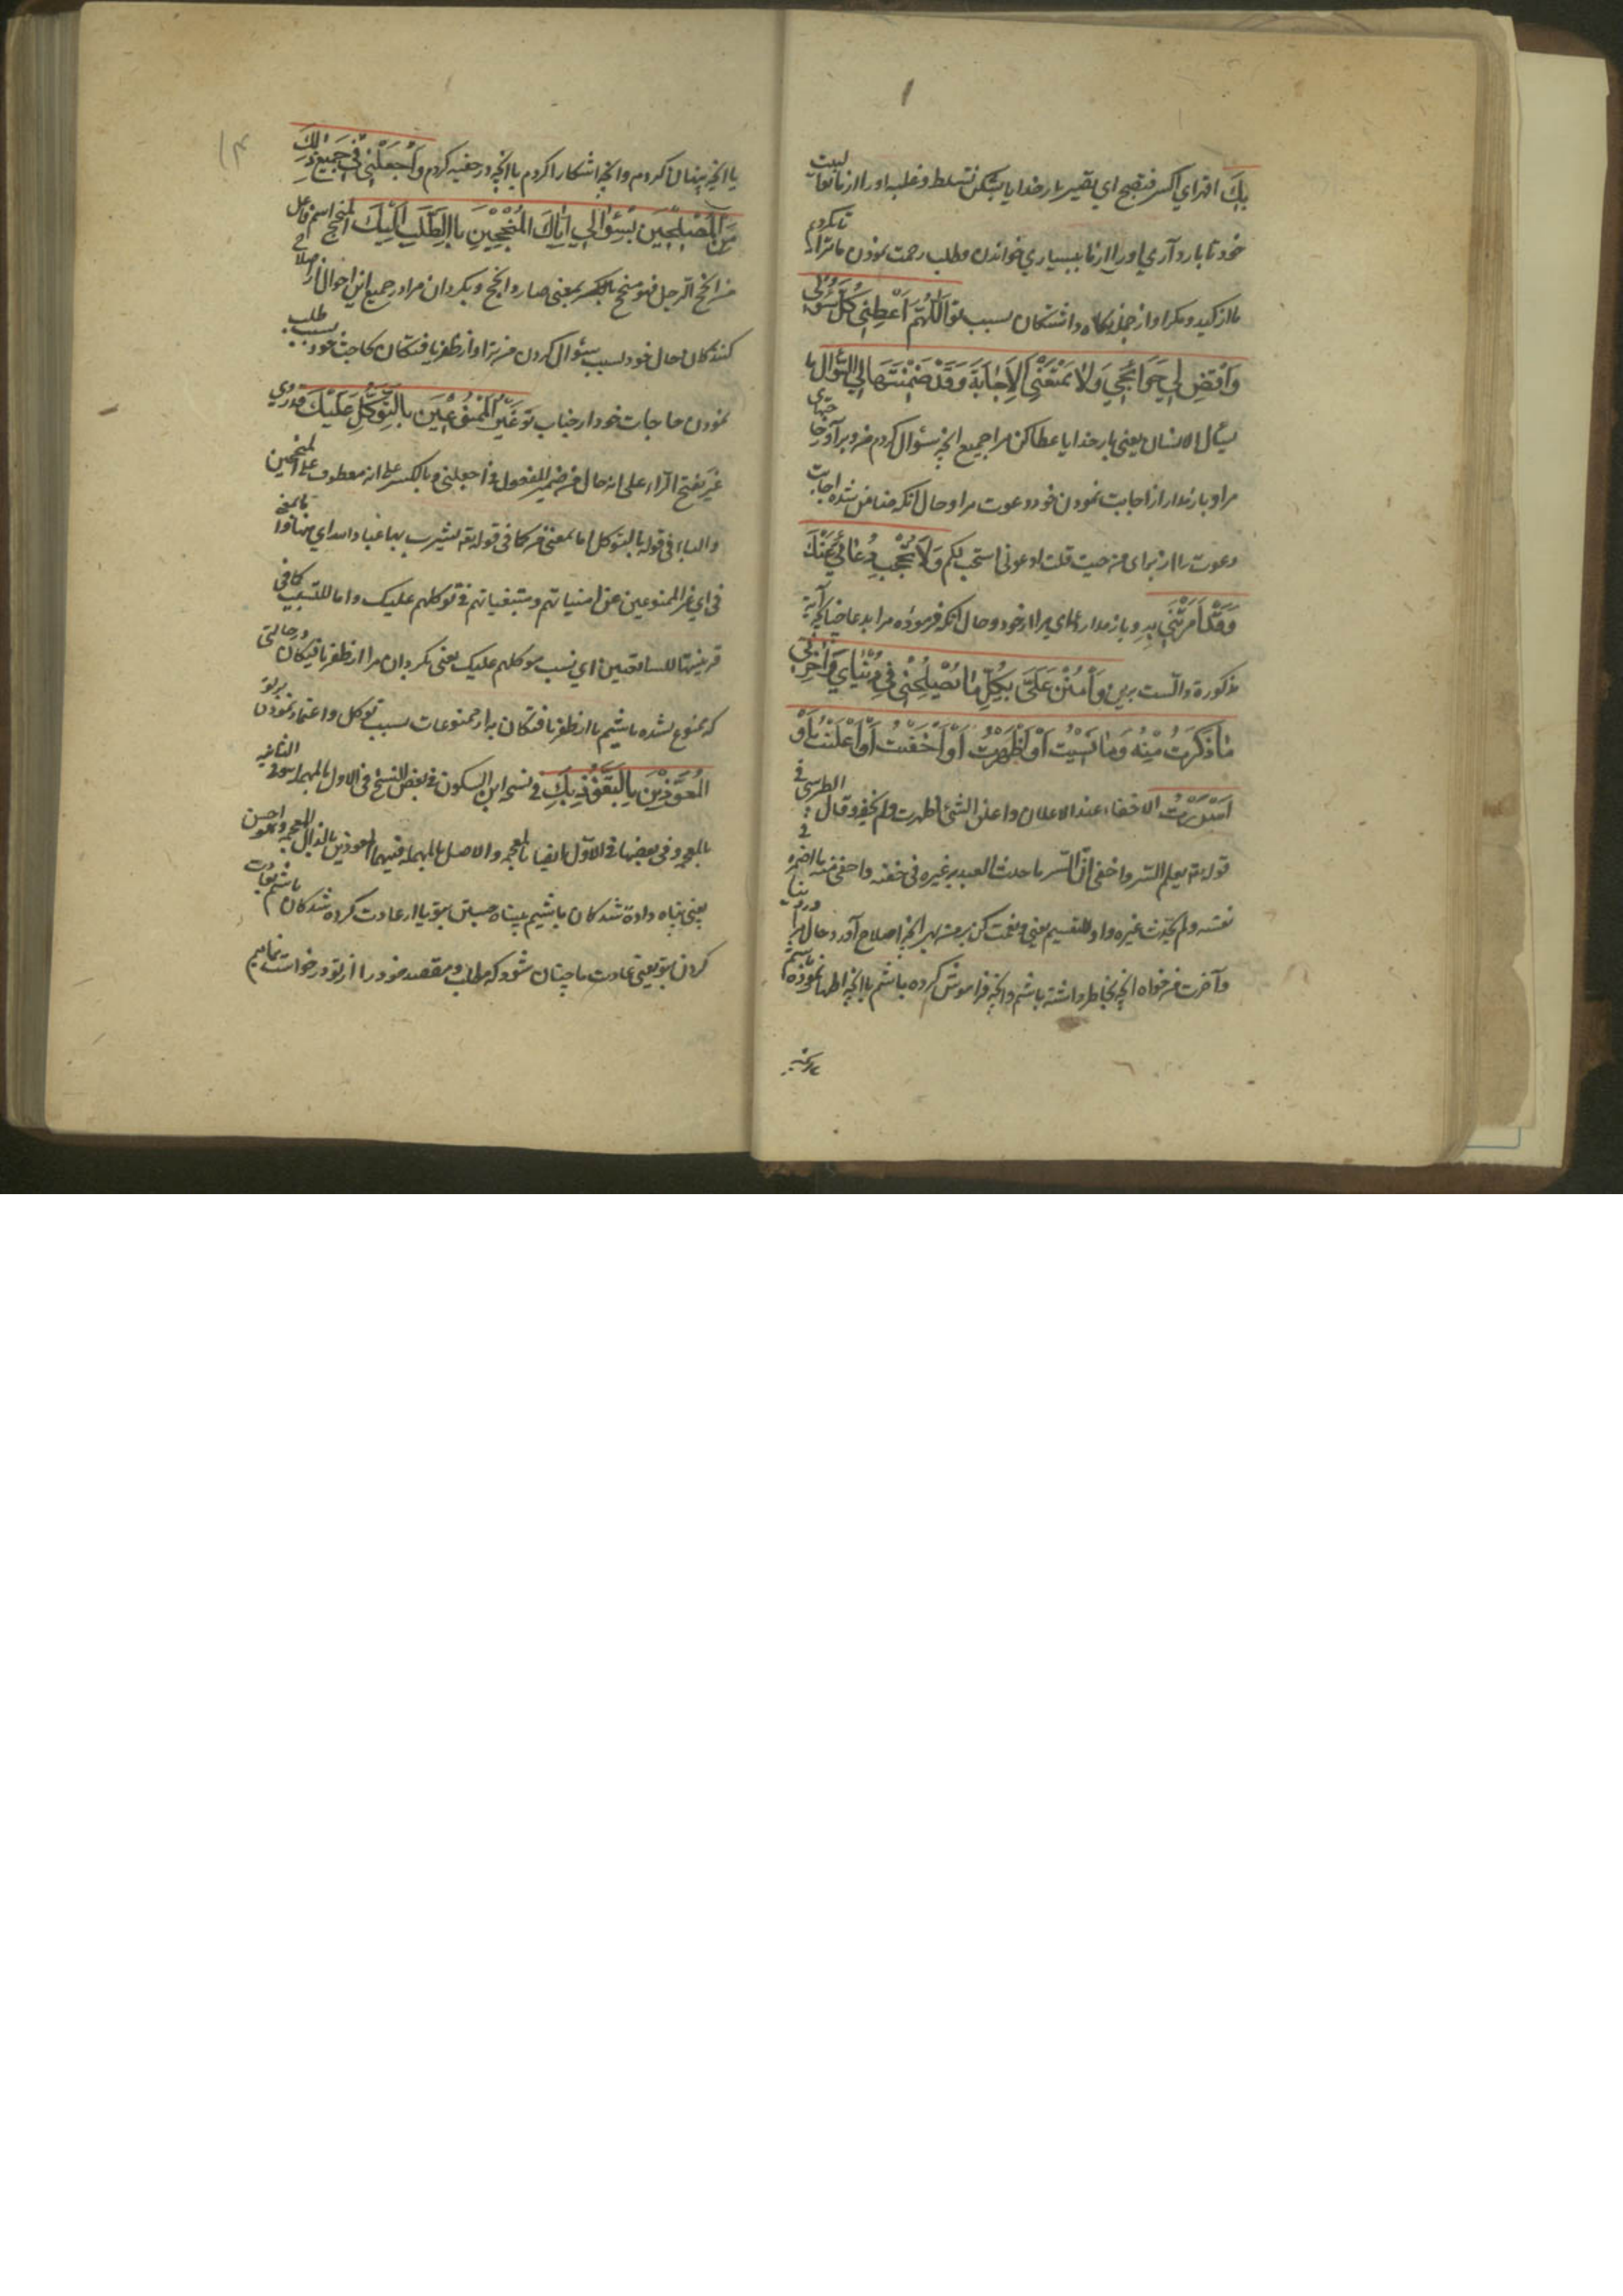 بِكَ اقهر اي اكسر فتصبح اي يصير بار خدايا بشكن تسلط و غلبه او را از ما
خود تا باز داري او را از ما ببسياري خواندن و طلب رحمت نمودن ما ترا تا بكردیم
ما از كيد و مكر او از جمله نگاه داشتگان بسبب تو اَللّٰهُمَّ اَعْطِنِي كُلَّ سُؤْلِي
وَاقْضِ لِي حَوَائِجِي وَلَا تَمْنَعْنِي الْاِجَابَةَ وَقَدْ ضَمِنْتَهَا لِي السؤال ما
يسأل الانسان يعني بار خدايا عطا كن مرا جميع انچه سؤال كردم من و برآور حاجتهاي
مرا و باز مدار از اجابت نمودن خود دعوت مرا و حال آنكه ضامن شده اجابت
دعوت را از براي من حيث قلت ادعوني استجب لكم وَلَا تَحْجُبْ دُعَائِي عَنْكَ
وَقَدْ اَمَرْتَنِي بِهِ و باز مدار دعاي مرا از خود و حال آنكه فرموده مرا بدعا چنانچه آية
مذكورة دالست برين وَامْنُنْ عَلَيَّ بِكُلِّ مَا يُصْلِحُنِي فِي دُنْيَايَ وَآخِرَتِي
مَا ذَكَرْتُ مِنْهُ وَمَا نَسِيتُ اَوْ اَظْهَرْتُ اَوْ اَخْفَيْتُ اَوْ اَعْلَنْتُ اَوْ
اَسْرَرْتُ الاخفاء عند الاعلان و اعلن الشئ اظهرت ولم يخف و قال الطبرسي في
قوله تم يعلم السّر و اخفى انّ السّر ما حدث العبد به غيره في خفيه و اخفى منه ما اضمره في
نفسه ولم يحدّث غيره واو للتقسيم يعني و نعمت كن بر من بهر انچه اصلاح آورد حال مرا در دنيا
و آخرت من خواه انچه بخاطر داشته باشم و انچه فراموش كرده باشم يا انچه اظهار نموده باشم
يا انچه پنهان كردم و انچه اشكارا كردم يا انچه در خفيه كردم وَاجْعَلْنِي فِي جَمِيعِ ذٰلِكَ
مِنَ الْمُصْلِحِينَ بِسُؤَالِي اِيَّاكَ الْمُنْجِحِينَ بِالطَّلَبِ اِلَيْكَ المنجح اسم فاعل
من انجح الرجل فهو منجح بالكسر بمعنى صار ذا نجح و بكردان مرا در جميع اين احوال از اصلاح
كنندگان حال خود بسبب سؤال كردن من ترا و از ظفر يافتگان بحاجت خود بسبب طلب
نمودن حاجات خود از جناب تو غَيْرِ الْمَمْنُوعِينَ بِالتَّوَكُّلِ عَلَيْكَ قد روي
غير بفتح الرّاء على انه حال من ضمير المفعول في اجعلني و بالكسر على انه معطوف على المنجحين
و الباء في قوله بالتوكل اما بمعنى من كما في قوله تم يشرب بها عباد الله اي منها
في اي غير الممنوعين عن امنياتهم و متبغياتهم في توكلهم عليك و اما للسّببيّة كما في
قرينتها للسابقتين اي بسبب توكلهم عليك يعني بكردان مرا از ظفر يافتكان در حالتي
كه ممنوع نشده باشيم يا از ظفر يافتكان نه از ممنوعات بسبب توكل و اعتماد نمودن بر تو
الْمُعَوَّذِينَ بِالتَّعَوُّذِ بِكَ في نسخة ابن السكون في بعض النسخ في الاول بالمهملة و في الثانية
بالمعجمة و في بعضها في الاوّل ايضا بالمعجمة و الاصل بالمهملة فيهما المعوذين بالذال المعجمة و هو احسن
يعني پناه داده شدكان باشيم بپناه جستن بتو يا از عادت كرده شدكان باشم بعادت
كردن بتو يعني عادت ما چنان شود كه مطلب و مقصد خود را از تو درخواست نماييم